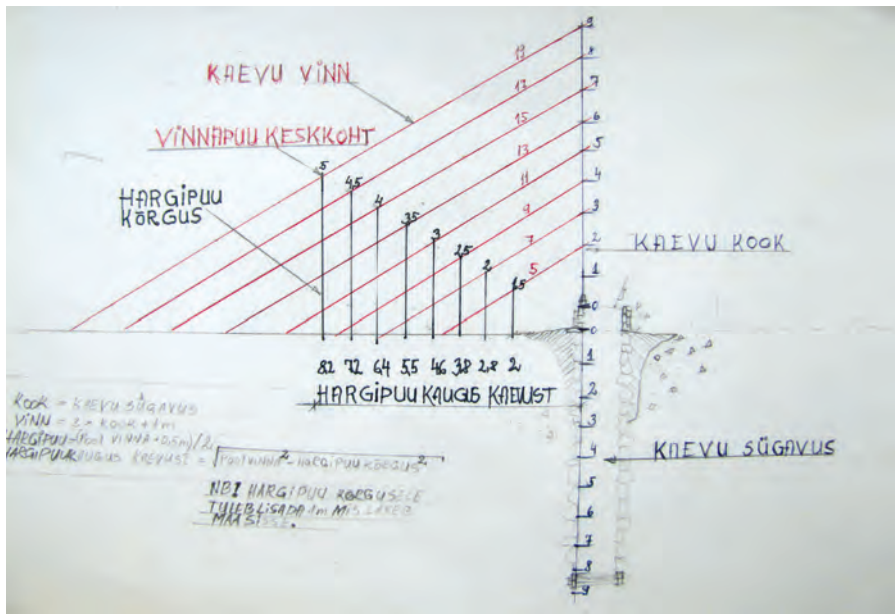 KAEVU VINN
VINNAPUU KESKKOHT
HARGIPUU
KÕRGUS
19
13
15
13
11
9
7
5
5
4,5
4
3,5
3
2,5
2
1,5
9
8
7
6
5
4
3
2
1
0
0
1
2
3
4
5
6
7
8
9
KAEVU KOOK
KAEVU SÜGAVUS
8,2 7,2 6,4 5,5 4,6 3,8 2,8 2
HARGIPUU KAUGUS KAEVUST
KOOK = KAEVU SÜGAVUS
VINN = 2 × KOOK + 1m
HARGIPUU = (POOL VINNA + 0,5m)/2
HARGIPUU KAUGUS KAEVUST = √POOLVINNA² - HARGIPUU KÕRGUS²
NB! HARGIPUU KÕRGUSELE
TULEB LISADA 1m MIS LÄHEB
MAA SISSE.